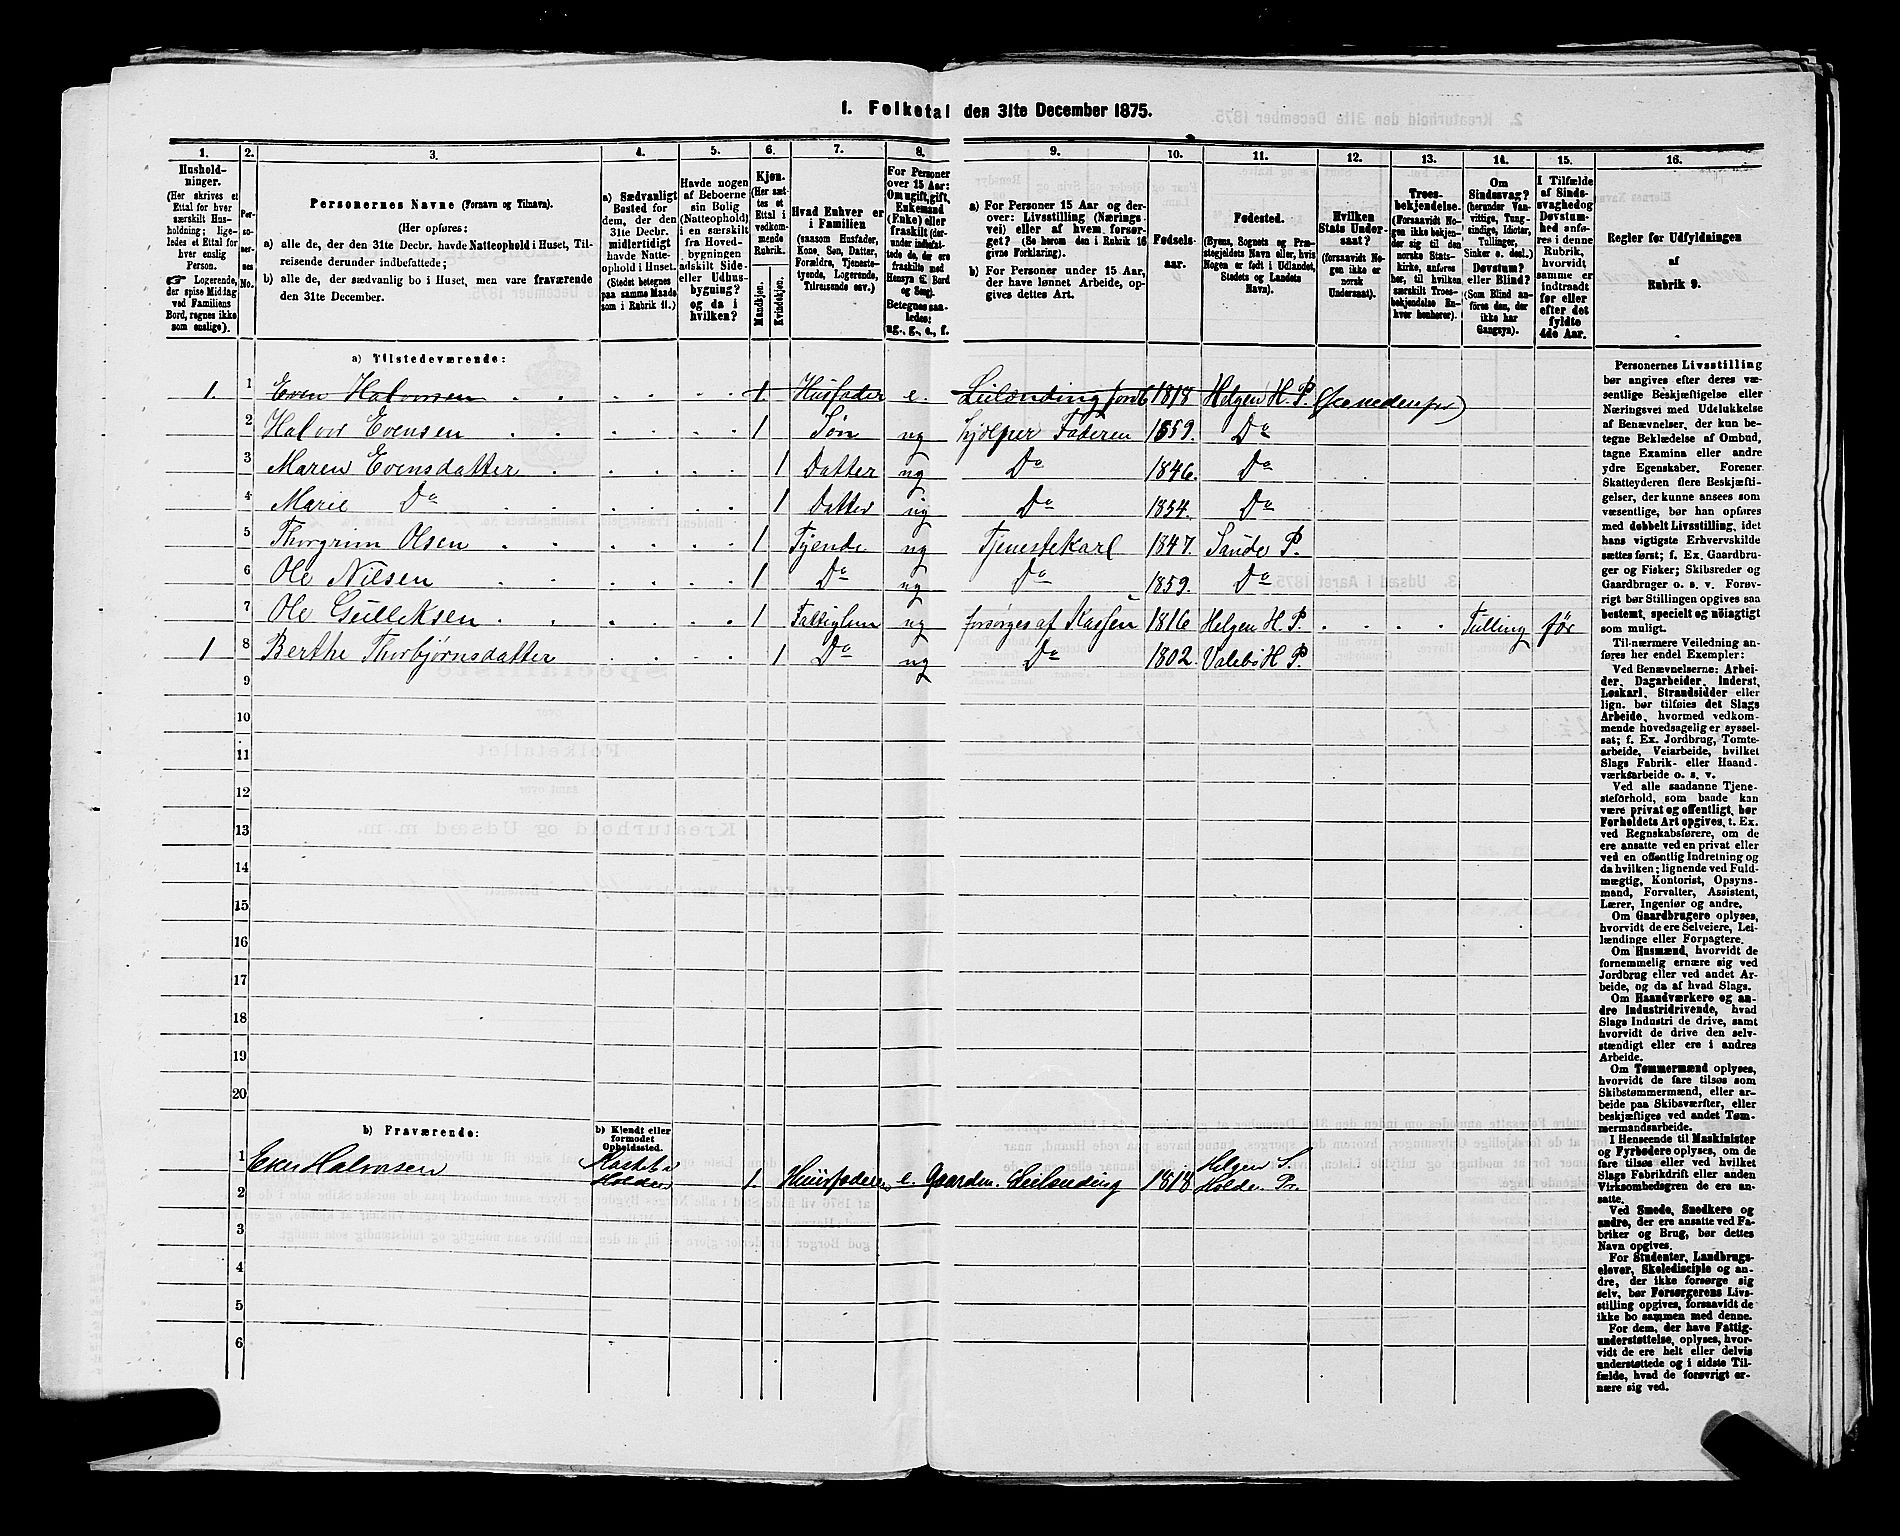 1. Folketal den 31te December 1875.
1.
2.
3.
4.
5.
6.
7.
8.
9.
10.
11.
12.
13.
14.
15.
16.
Hushold-
ninger.
(Her skrives et
Ettal for hver
særskilt Hus-
holdning; lige-
ledes et Ettal for
hver enslig
Person.
☞ Logerende,
der spise Middag
ved Familiens
Bord, regnes ikke
som enslige).
Per-
so-
ner-
nes
No.
Personernes Navne (Fornavn og Tilnavn).
(Her opføres:
a) alle de, der den 31te Decbr. havde Natteophold i Huset, Til-
reisende derunder indbefattede;
b) alle de, der sædvanlig bo i Huset, men vare fraværende
den 31te December.
a) Sædvanligt
Bosted for
dem, der den
31te Decbr.
midlertidigt
havde Natte-
ophold i Huset.
(Stedet betegnes
paa samme Maade
som i Rubrik 11.)
Havde nogen
af Beboerne
sin Bolig
(Natteophold)
i en særskilt
fra Hoved-
bygningen
adskilt Side-
eller Udhus-
bygning?
og da i
hvilken?
Kjøn.
(Her sæt-
tes et
Ettal i
vedkom-
mende
Rubrik.
Mandkjøn.
Kvindekjøn.
Hvad Enhver er
i Familien
(saasom Husfader,
Kone, Søn, Datter,
Forældre, Tjeneste-
tyende, Logerende,
Tilreisende osv.)
For Personer
over 15 Aar:
Om ugift, gift,
Enkemand
(Enke) eller
fraskilt (der-
under indbefat-
tede de, der ere
fraskilte med
Hensyn til Bord
og Seng).
Betegnes saa-
ledes:
ug., g., e., f.
a) For Personer 15 Aar og der-
over: Livsstilling (Nærings-
vei) eller af hvem forsør-
get? (Se herom den i Rubrik 16
givne Forklaring).
b) For Personer under 15 Aar,
der have lønnet Arbeide, op-
gives dettes Art.
Fødsels-
aar.
Fødested.
(Byens, Sognets og Præ-
stegjeldets Navn eller, hvis
Nogen er født i Udlandet,
Stedets og Landets
Navn).
Hvilken
Stats Under-
saat?
(forsaavidt No-
gen ikke er
norsk
Undersaat).
Troes-
bekjendelse.
(Forsaavidt No-
gen ikke bekjen-
der sig til den
norske Stats-
kirke, anføres
her, til hvilken
særskilt Troes-
bekjendelse En-
hver henhører).
Om
Sindssvag?
(herunder Van-
vittige, Tung-
sindige, Idioter,
Tullinger,
Sinker o. desl.).
Døvstum?
eller Blind?
(Som Blind an-
føres den, der
ikke har
Gangsyn).
I Tilfælde
af Sinds-
svaghed og
Døvstum-
hed anfø-
res i denne
Rubrik,
hvorvidt
samme er
indtraadt
før eller
efter det
fyldte
4de Aar.
Regler for Udfyldningen
af
Rubrik 9.
a) Tilstedeværende:
1. 1 Even Halvorsen 1 Husfader e. Leilænding 1818 Helgen H. P.
2 Halvor Evensen 1 Søn ug hjælper Faderen 1859. Do
3 Maren Evensdatter 1 Datter ug Do 1846. Do
4 Marie Do 1 Datter ug Do 1854. Do
5 Thorgrim Olsen 1 Tjende ug Tjenestekarl 1847. Saude P.
6 Ole Nilsen 1 Do ug Do 1859. Do
7 Ole Gulleksen 1 Fattiglem ug forsørges af Kassen 1816 Helgen H. P. Tulling før
1 8 Berthe Thorbjørnsdatter 1 Do ug Do 1802. Valebø H P.
9
10
11
12
13
14
15
16
17
18
19
20
b) Fraværende:
b) Kjendt eller
formodet
Opholdssted.
1 Even Halvorsen Kastet i Holden 1 Huusfaderen e. Gaardm. Leilænding 1818 Helgen S. Holden Pr.
2
3
4
5
6
Personernes Livsstilling
bør angives efter deres væ-
sentlige Beskjæftigelse eller
Næringsvei med Udelukkelse
af Benævnelser, der kun be-
tegne Beklædelse af Ombud,
tagne Examina eller andre
ydre Egenskaber. Forener
Skatteyderen flere Beskjæfti-
gelser, der kunne ansees som
væsentlige, bør han opføres
med dobbelt Livsstilling, idet
hans vigtigste Erhvervskilde
sættes først; f. Ex. Gaardbru-
ger og Fisker; Skibsreder og
Gaardbruger o. s. v. Forøv-
rigt bør Stillingen opgives saa
bestemt, specielt og nøiagtigt
som muligt.
Til nærmere Veiledning an-
føres her endel Exempler:
Ved Benævnelserne: Arbei-
der, Dagarbeider, Inderst,
Løskarl, Strandsidder eller
lign. bør tilføies det Slags
Arbeide, hvormed vedkom-
mende hovedsagelig er syssel-
sat; f. Ex. Jordbrug, Tomte-
arbeide, Veiarbeide, hvilket
Slags Fabrik- eller Haand-
værksarbeide o. s. v.
Ved alle saadanne Tjene-
steforhold, som baade kan
være privat og offentligt, bør
Forholdets Art opgives, t. Ex.
ved Regnskabsførere, om de
ere ansatte ved en privat eller
ved en offentlig Indretning og
da hvilken; lignende ved Fuld-
mægtig, Kontorist, Opsyns-
mand, Forvalter, Assistent,
Lærer, Ingeniør og andre.
Om Gaardbrugere oplyses,
hvorvidt de ere Selveiere, Lei-
lændinge eller Forpagtere.
Om Husmænd, hvorvidt de
fornemmelig ernære sig ved
Jordbrug eller ved andet Ar-
beide, og da af hvad Slags.
Om Haandværkere og an-
dre Industridrivende, hvad
Slags Industri de drive, samt
hvorvidt de drive den selv-
stændigt eller ere i andres
Arbeide.
Om Tømmermænd oplyses,
hvorvidt de fare tilsøs som
Skibstømmermænd, eller ar-
beide paa Skibsværfter, eller
beskjæftiges ved andet Tøm-
mermandsarbeide.
I Henseende til Maskinister
og Fyrbødere oplyses, om de
fare tilsøs eller ved hvilket
Slags Fabrikdrift eller anden
Virksomhedsgren de ere an-
satte.
Ved Smede, Snedkere og
andre, der ere ansatte ved Fa-
briker og Brug, bør dettes
Navn opgives.
For Studenter, Landbrugs-
elever, Skoledisciple og an-
dre, der ikke forsørge sig
selv, bør Forsørgerens Livs-
stilling opgives, forsaavidt de
ikke bo sammen med denne.
For dem, der have Fattig-
understøttelse, oplyses, hvor-
vidt de ere helt eller delvis
understøttede og i sidste Til-
fælde, hvad de forøvrigt er-
nære sig ved.